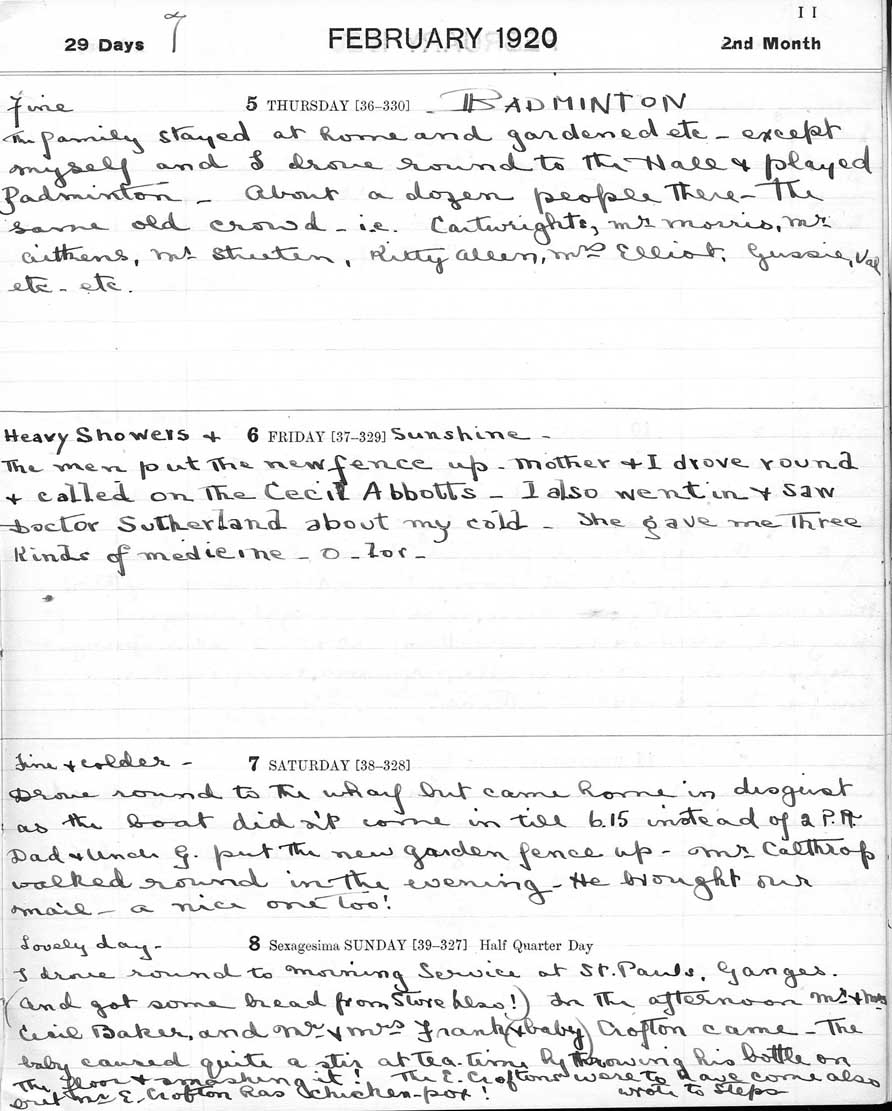 7
11
29 Days FEBRUARY 1920 2nd Month
Fine 5 THURSDAY [36-330] - BADMINTON
The family stayed at home and gardened etc - except
myself and I drove round to the Hall & played
Badminton - About a dozen people there - The
same old crowd - i.e. Cartwrights, Mr Morris, Mr
Aitkens, Mr Streeten, Kitty Allen, Mrs Elliot, Gussie, Val
etc - etc.
Heavy Showers & 6 FRIDAY [37-329] Sunshine -
The men put the new fence up - Mother & I drove round
& called on The Cecil Abbotts - I also went in & saw
Doctor Sutherland about my cold - She gave me Three
Kinds of medicine - O - Lor -
Fine & colder - 7 SATURDAY [38-328]
Drove round to the wharf but came home in disgust
as the boat didn't come in till 6.15 instead of 2 P.M.
Dad & Uncle G. put the new garden fence up - Mr Calthrop
walked round in the evening - He brought our
mail - a nice one too!
Lovely day - 8 Sexagesima SUNDAY [39-327] Half Quarter Day
I drove round to morning Service at St. Pauls, Ganges.
(And got some bread from Store also!) In the afternoon Mr & Mrs
Cecil Baker, and Mr & Mrs Frank (& baby) Crofton came - The
baby caused quite a stir at tea-time by throwing his bottle on
The floor & smashing it! The E. Croftons were to have come also
but Mr E. Crofton has chicken-pox! wrote to Steps